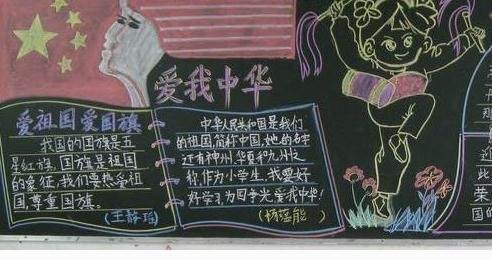 爱我中华
爱祖国爱国旗
我国的国旗是五
星红旗,国旗是祖国
的象征,我们要热爱祖
国尊重国旗。
(王静瑶)
中华人民共和国是我们
的祖国,简称中国,她的名字
还有神州、华夏和九州之
称,作为小学生,我要好
好学习为国争光爱我中华!